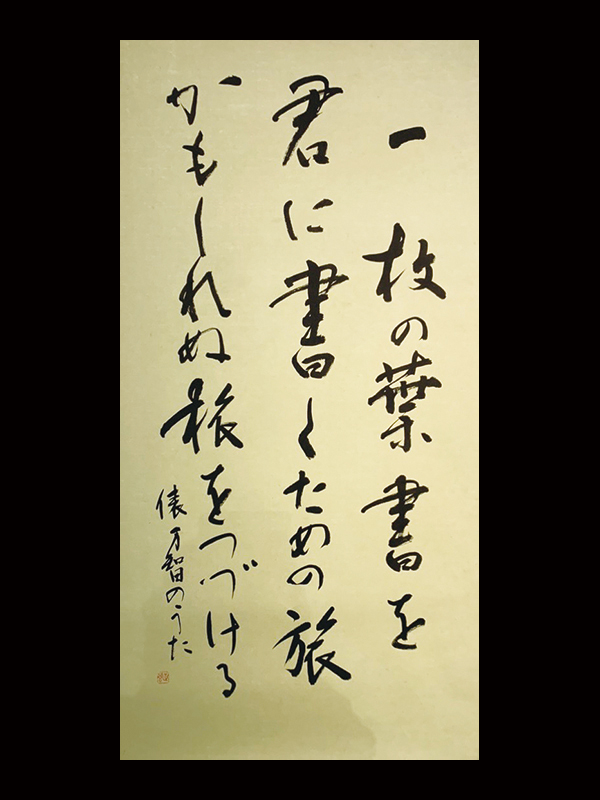 一枚の葉書を
君に書くための旅
かもしれぬ旅をつづける
俵万智のうた